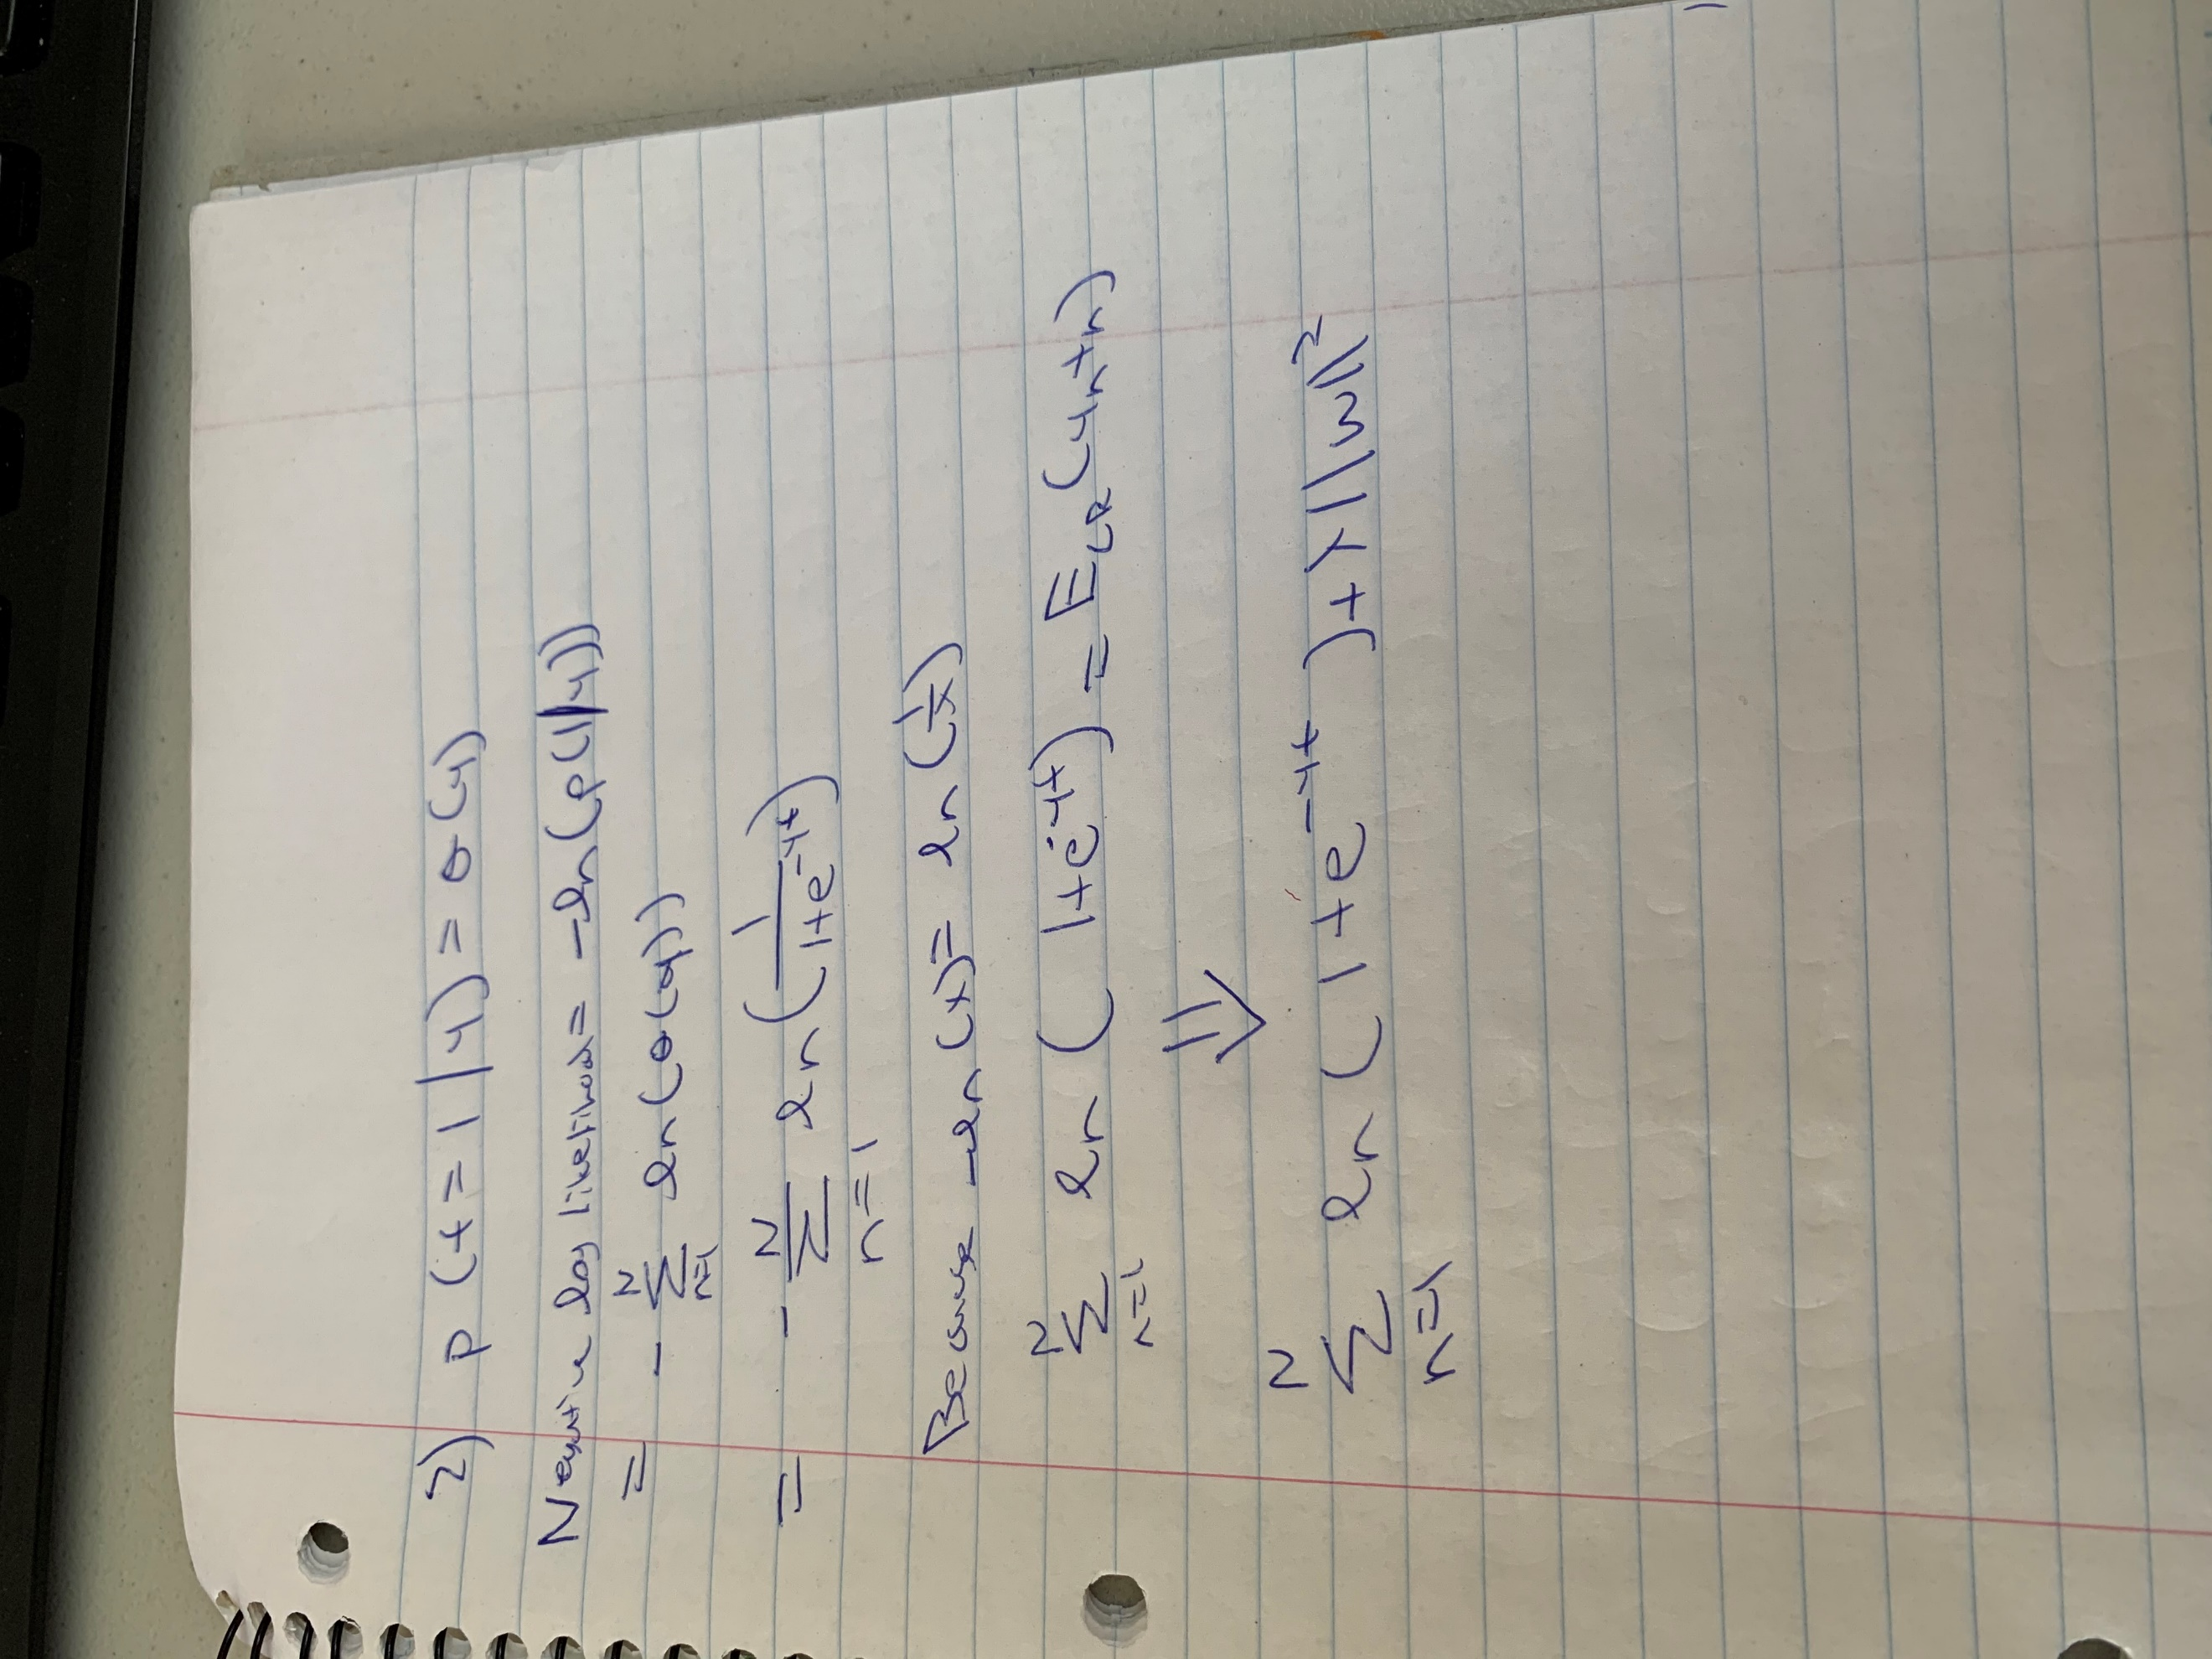 2) p(t=1|y) = σ(y)
Negative log likelihood = -ln(p(1|y))
= - N∑n=1 ln(σ(y))
= - N∑n=1 ln(1/(1+e^-yt))
Because -ln(x) = ln(1/x)
N∑n=1 ln(1+e^-yt) = E_LR(yntn)
⇓
N∑n=1 ln(1+e^-yt) + λ||w||²